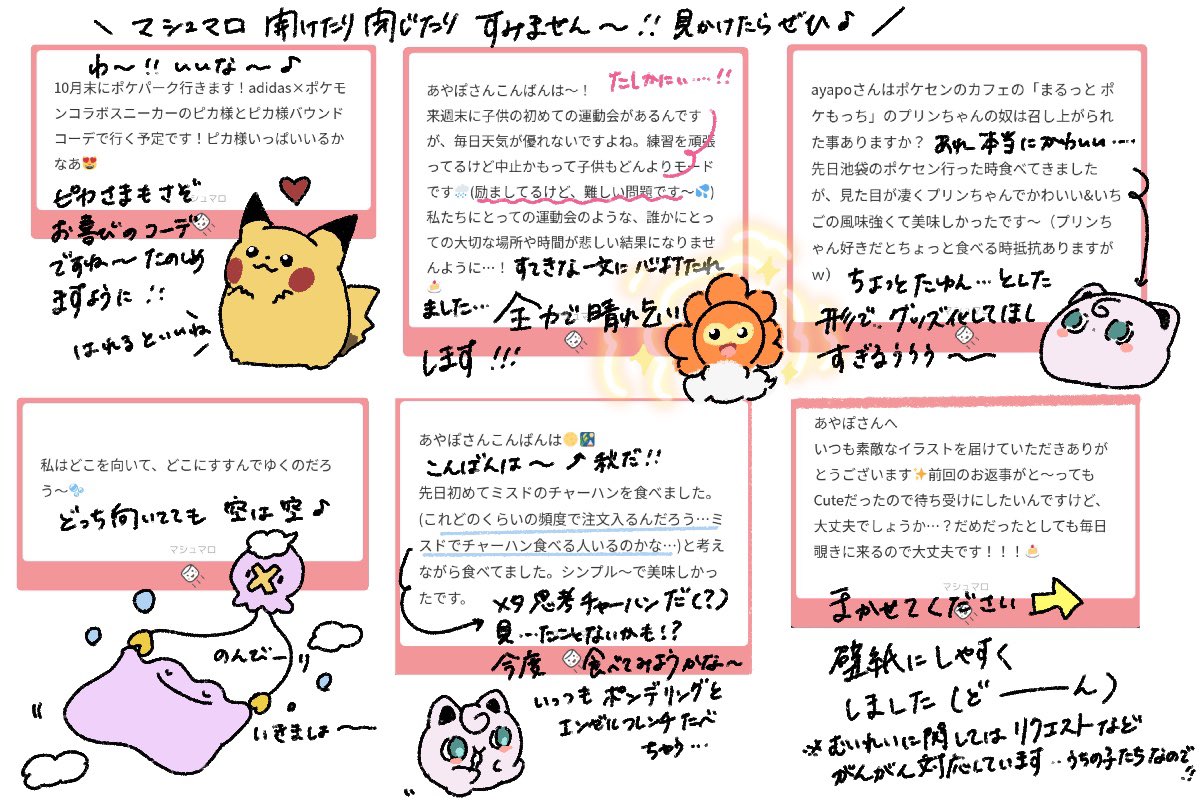 \ マシュマロ 開けたり閉じたり すみません〜!! 見かけたらぜひ♪ /
わ〜!! いいな〜♪
10月末にポケパーク行きます！adidas×ポケモ
ンコラボスニーカーのピカ様とピカ様バウンド
コーデで行く予定です！ピカ様いっぱいいるか
なあ😍
マシュマロ
ピカさまもさぞ
お喜びのコーデ
ですね〜 たのしめ
ますように!!
はれるといいね
たしかにぃ……!!
あやぽさんこんばんは〜！
来週末に子供の初めての運動会があるんです
が、毎日天気が優れないですよね。練習を頑張
ってるけど中止かもって子供もどんよりモード
です🌧️(励ましてるけど、難しい問題です〜💦)
私たちにとっての運動会のような、誰かにとっ
ての大切な場所や時間が悲しい結果になりませ
んように…！
🍮
すてきな一文に心打たれ
ました… 全力で晴れ乞い
します!!!
ayapoさんはポケセンのカフェの「まるっと ポ
ケもっち」のプリンちゃんの奴は召し上がられ
た事ありますか？
あれ本当にかわいい……
先日池袋のポケセン行った時食べてきました
が、見た目が凄くプリンちゃんでかわいい&いち
ごの風味強くて美味しかったです〜（プリンち
ゃん好きだとちょっと食べる時抵抗ありますが
w）
ちょっとたゆん…とした
形で、グッズ化してほし
すぎるぅぅぅ〜
私はどこを向いて、どこにすすんでゆくのだろ
う〜🫧
どっち向いてても 空は空♪
マシュマロ
のんびーり
いきましょ〜
あやぽさんこんばんは🌕🎑
こんばんは〜 秋だ!!
先日初めてミスドのチャーハンを食べました。
(これどのくらいの頻度で注文入るんだろう…ミ
スドでチャーハン食べる人いるのかな…)と考え
ながら食べてました。シンプル〜で美味しかっ
たです。
メタ思考チャーハンだ(?)
見…たことないかも!?
今度 食べてみようかな〜
いっつも ポンデリングと
エンゼルフレンチたべ
ちゃう…
あやぽさんへ
いつも素敵なイラストを届けていただきありが
とうございます✨前回のお返事がと〜っても
Cuteだったので待ち受けにしたいんですけど、
大丈夫でしょうか…？だめだったとしても毎日
覗きに来るので大丈夫です！！！🍮
マシュマロ
まかせてください
壁紙にしやすく
しました(どーーん)
※むいれいに関してはリクエストなど
がんがん対応しています…うちの子たちなので!!